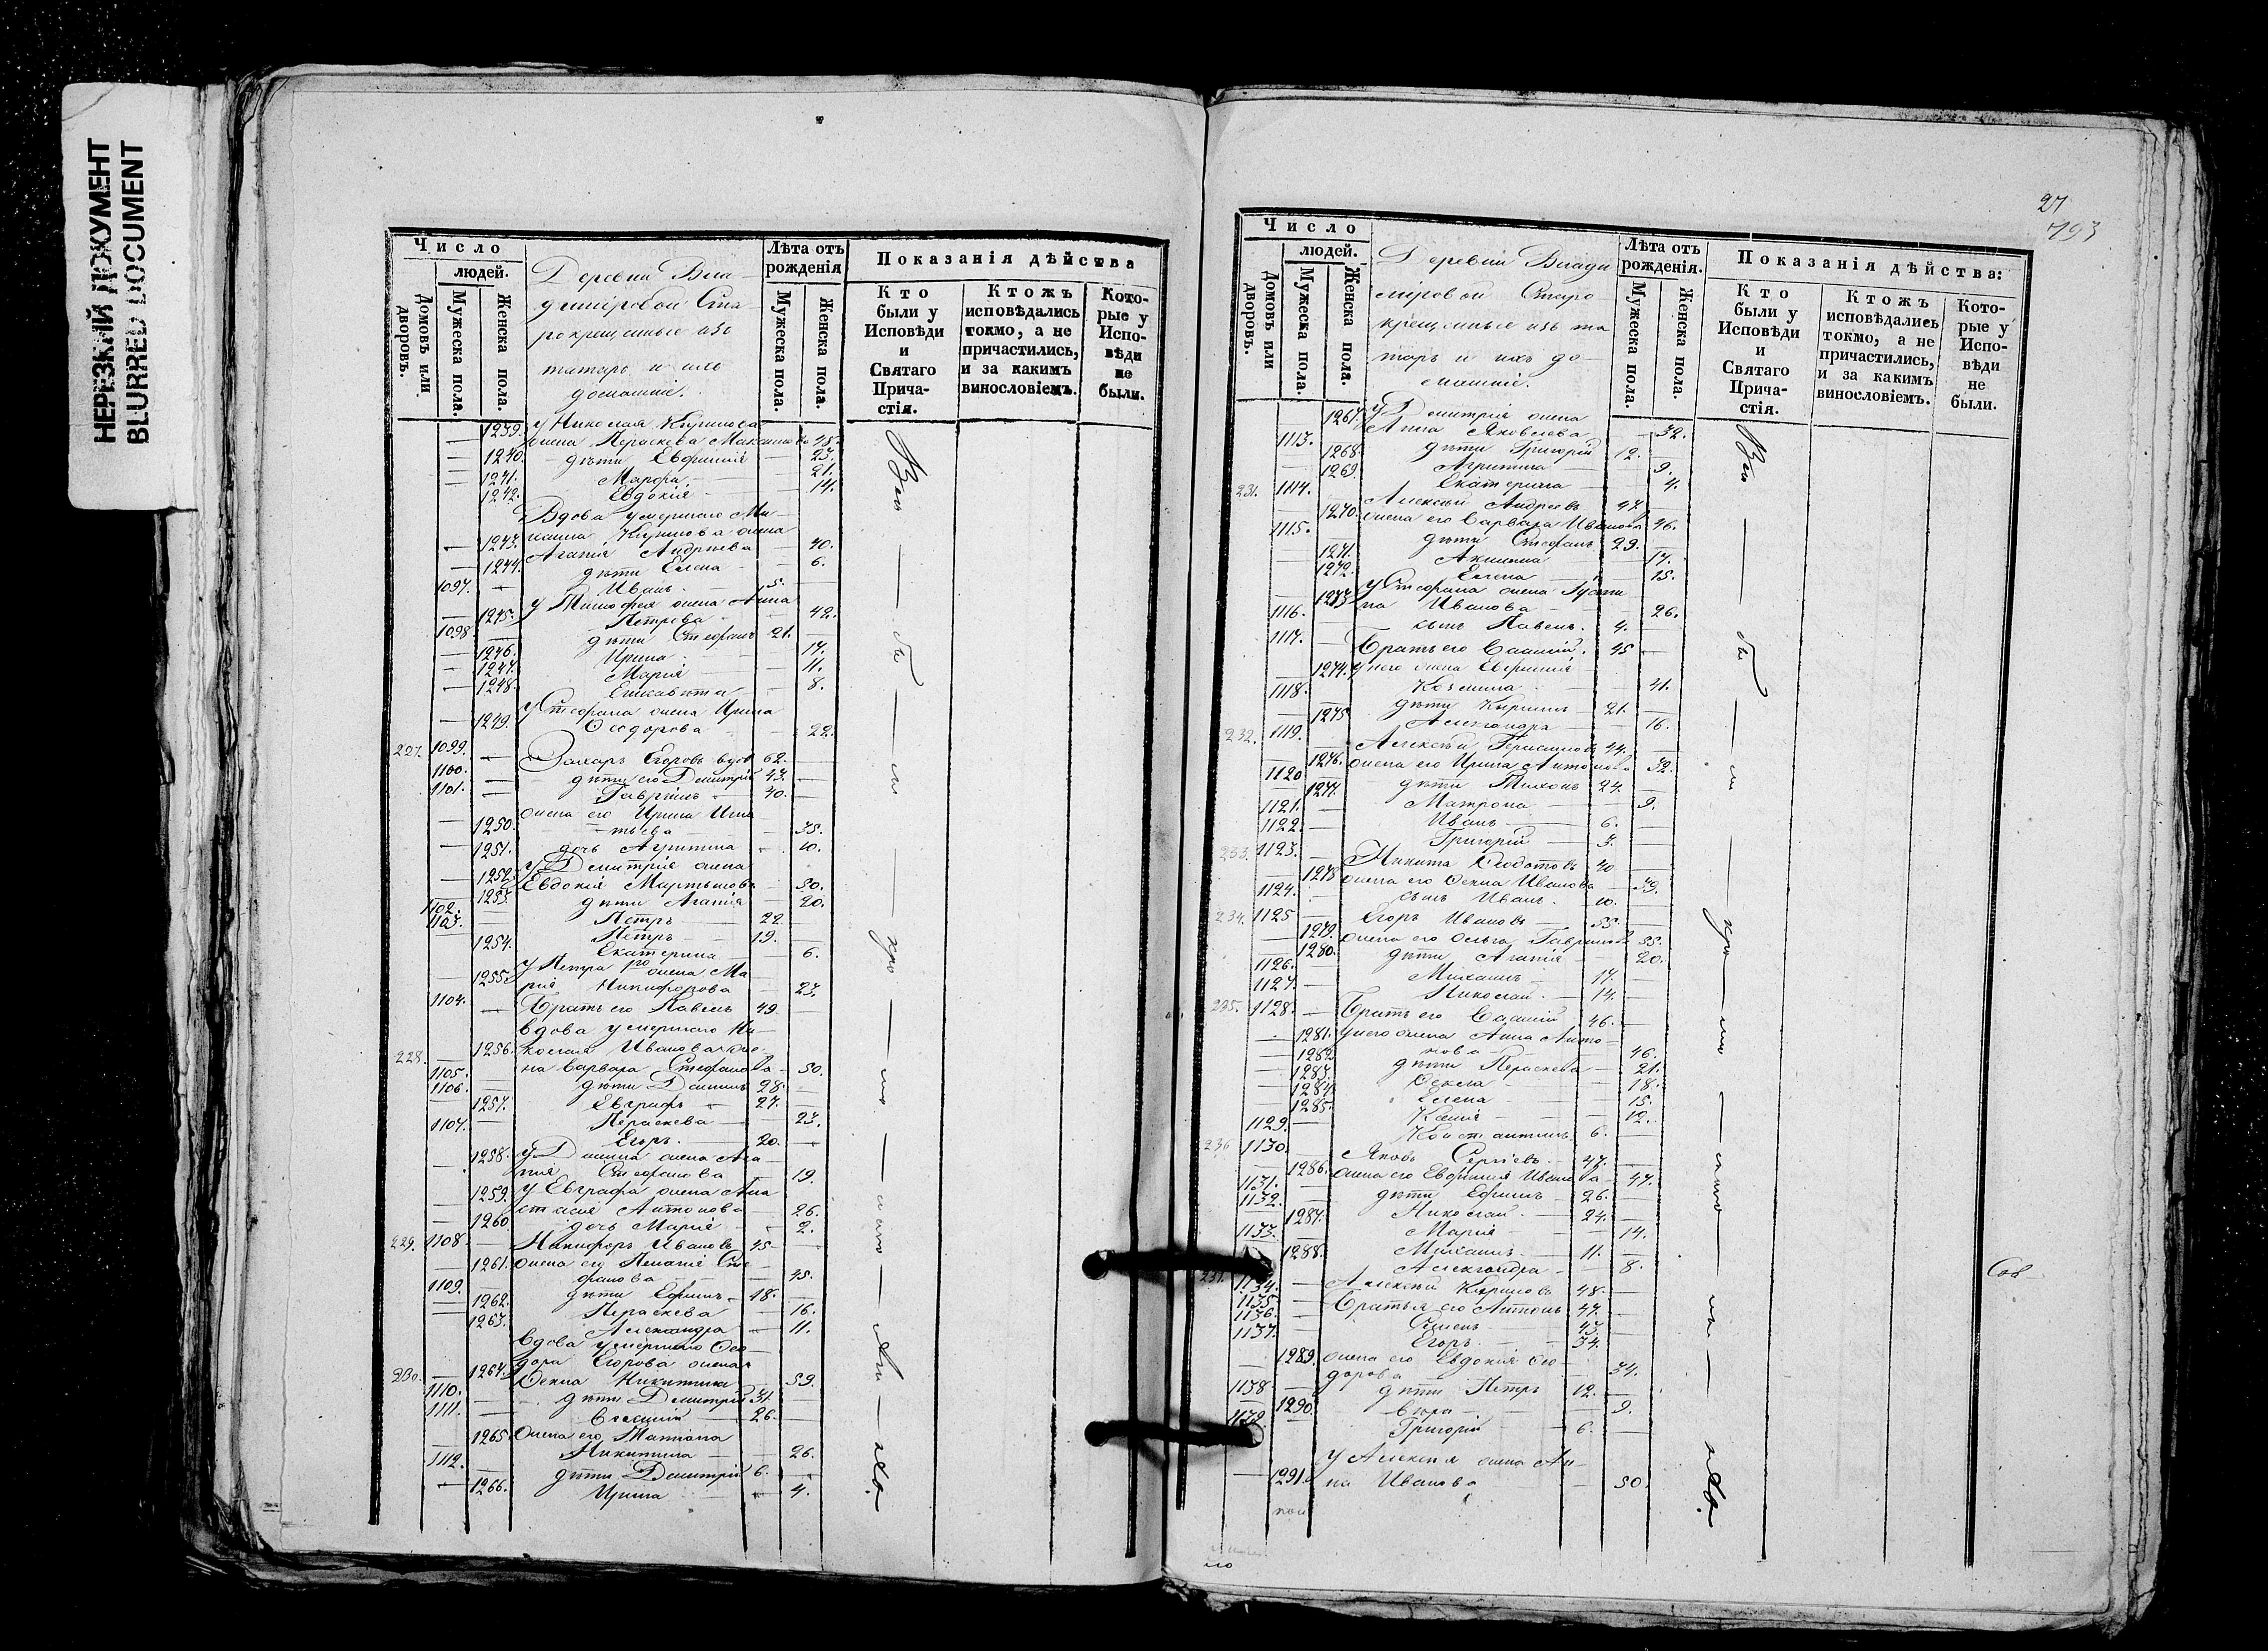 НЕРЕЗКИЙ ДОКУМЕНТ
BLURRED DOCUMENT
Число
людей.
Домовъ или дворовъ.
Мужеска пола.
Женска пола.
Деревни Вла-
димiровой Ста-
рокрещеные изъ
татаръ и ихъ
домашнiе.
Лѣта отъ рожденiя
Мужеска пола.
Женска пола.
Показанiя дѣйства
Кто были у Исповѣди и Святаго Прича-стiя.
Ктожъ исповѣдались токмо, а не причастились, и за какимъ винословiемъ.
Кото-рые у Испо-вѣди не были.
1239. у Николая Кирилова
жена Параскева Максимова 48.
1240. дѣти Евфимiя 23.
1241. Марѳа 21.
1242. Евдокiя 14.
Вдова умершаго Ми-
хаила Кирилова жена
1243. Агапiя Андреева 40.
1244. дѣти Елена 6.
1097. Иванъ 5.
у Тимофея жена Анна
1245. Петрова 42.
1098. дѣти Стефанъ 21.
1246. Ирина 17.
1247. Марiя 11.
1248. Елисавета 8.
у Стефана жена Ирина
1249. Ѳеодорова 22.
227. 1099. Захаръ Егоровъ вдов 62.
1100. дѣти его Димитрiй 43.
1101. Гаврiилъ 40.
жена его Ирина Игна
1250. тьева 35.
1251. дочь Агрипина 10.
у Димитрiя жена
1252. Евдокiя Мартынова 50.
1253. дѣти Агапiя 20.
1102. Петръ 22.
1103. Петръ 19.
1254. Екатерина 6.
у Петра 1го жена Ма
1255. рiя Никифорова 23.
1104. Братъ его Павелъ 49.
вдова умершаго Ни-
228. 1256. колая Иванова же-
на Варвара Стефанова 50.
1105. дѣти Данiилъ 28.
1106. Евграфъ 27.
1257. Параскева 23.
1107. Егоръ 20.
у Данiила жена Ага
1258. пiя Стефанова 19.
у Евграфа жена Ана
1259. стасiя Антонова 26.
1260 дочь Марiя 2.
229. 1108 Никифоръ Ивановъ 45.
1261. жена его Пелагiя Сте
фанова 45.
1109. дѣти Ефимъ 18.
1262. Параскева 16.
1263. Александра 11.
вдова умершаго Ѳео-
дора Егорова жена
230. 1264. Ѳекла Никитина 59.
1110. дѣти Димитрiй 31.
1111. Василiй 26.
1265. жена его Татiана
Никитина 26.
1112. дѣти Димитрiй 6.
1266. Ирина 4.
Всѣ были у исповѣди
27
793
Число
людей.
Домовъ или дворовъ.
Мужеска пола.
Женска пола.
Деревни Влади
мiровой Старо
крещеные изъ та
таръ и ихъ до-
машнiе.
Лѣта отъ рожденiя.
Мужеска пола.
Женска пола.
Показанiя дѣйства:
Кто были у Исповѣди и Святаго Прича-стiя.
Ктожъ исповѣдались токмо, а не причастились, и за какимъ винословiемъ.
Кото-рые у Испо-вѣди не были.
1267. у Димитрiя жена
Анна Яковлева 32.
1113. дѣти Григорiй 12.
1268. Агрипина 9.
1269. Екатерина 4.
231. 1114. Алексѣй Андреевъ 47.
1270. жена его Варвара Иванова 46.
1115. дѣти Стефанъ 29.
1271. Акилина 17.
1272. Елена 15.
у Стефана жена Усти
1273. на Иванова 26.
1116. сынъ Павелъ 4.
1117. Братъ его Василiй 45
1274. у него жена Евфимiя
Козмина 41.
1118. дѣти Кирилъ 21.
1275 Александра 16.
232. 1119. Алексѣй Герасимовъ 44.
1276. жена его Ирина Антонова 32.
1120 дѣти Тихонъ 24.
1277. Матрона 9.
1121. Иванъ 6.
1122. Григорiй 3.
233. 1123. Никита Ѳедотовъ 40
1278 жена его Ѳекла Иванова 39.
1124. сынъ Иванъ 10.
234. 1125 Егоръ Ивановъ 55.
1279. жена его Ольга Гаврилова 55.
1280. дѣти Агапiя 20.
1126. Михаилъ 17.
1127. Николай 14.
235. 1128. Братъ его Василiй 46.
1281. у него жена Анна Анто-
нова 46.
1282. дѣти Параскева 21.
1283. Ѳекла 18.
1284. Елена 15.
1285. Ксенiя 12.
1129. Константинъ 6.
236 1130. Яковъ Сергiевъ 47.
1286. жена его Евфимiя Иванова 47.
1131. дѣти Ефимъ 26.
1132. Николай 24.
1287. Марiя 14.
1133. Михаилъ 11.
1288. Александра 8.
237. 1134. Алексѣй Кириловъ 48.
1135. Братья его Антонъ 47.
1136. Семенъ 43.
1137. Егоръ 34.
1289. жена его Евдокiя Ѳео-
дорова 34.
1138 дѣти Петръ 12.
1290. Вѣра 9.
1139. Григорiй 6.
у Алексѣя жена Ан-
1291. на Иванова 50.
Сов